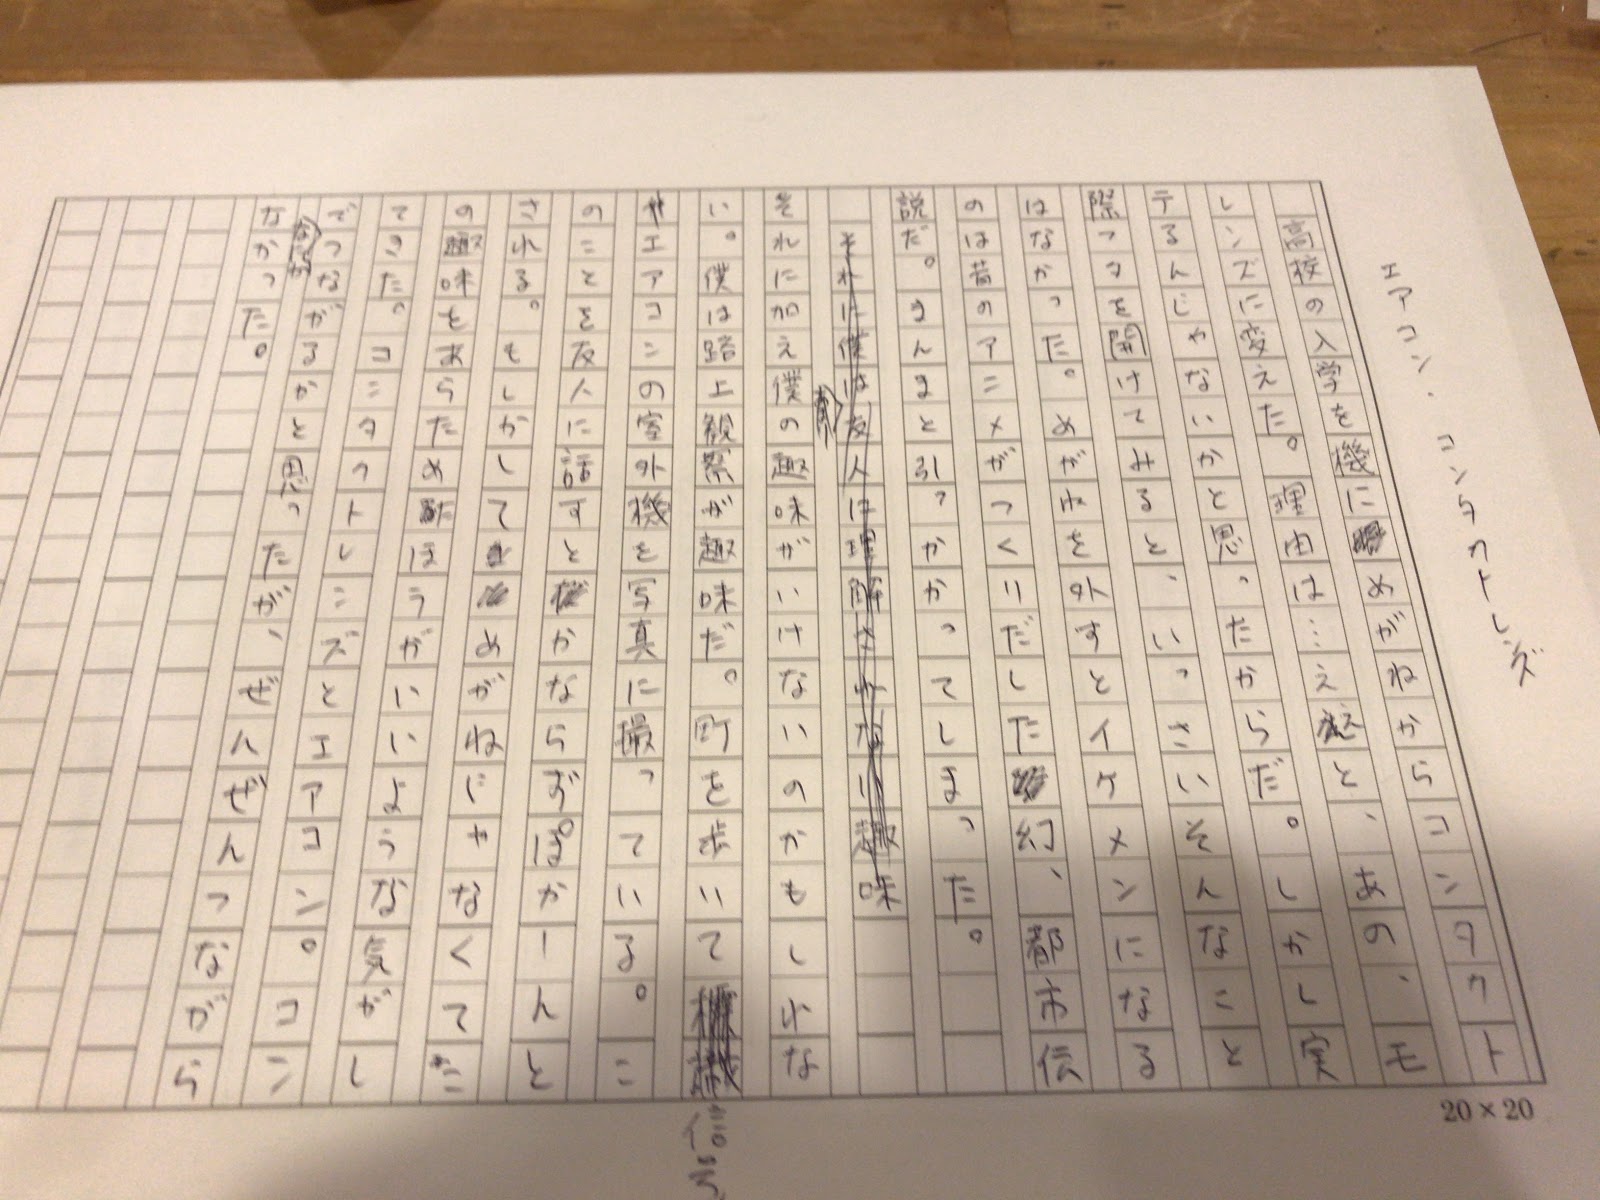 エアコン・コンタクトレンズ
高校の入学を機にめがねからコンタクト
レンズに変えた。理由は…ええと、あの、モ
テるんじゃないかと思ったからだ。しかし実
際フタを開けてみると、いっさいそんなこと
はなかった。めがねを外すとイケメンになる
のは昔のアニメがつくりだした幻、都市伝
説だ。まんまと引っかかってしまった。
それに僕は友人は理解されない趣味
それに加え僕の趣味がいけないのかもしれな
い。僕は路上観察が趣味だ。町を歩いて
信号
やエアコンの室外機を写真に撮っている。こ
のことを友人に話すとかならずぽかーんと
される。もしかしてめがねじゃなくてこ
の趣味をあらためたほうがいいような気がし
てきた。コンタクトレンズとエアコン。コン
でつながるかと思ったが、ぜんぜんつながら
なかった。
20×20